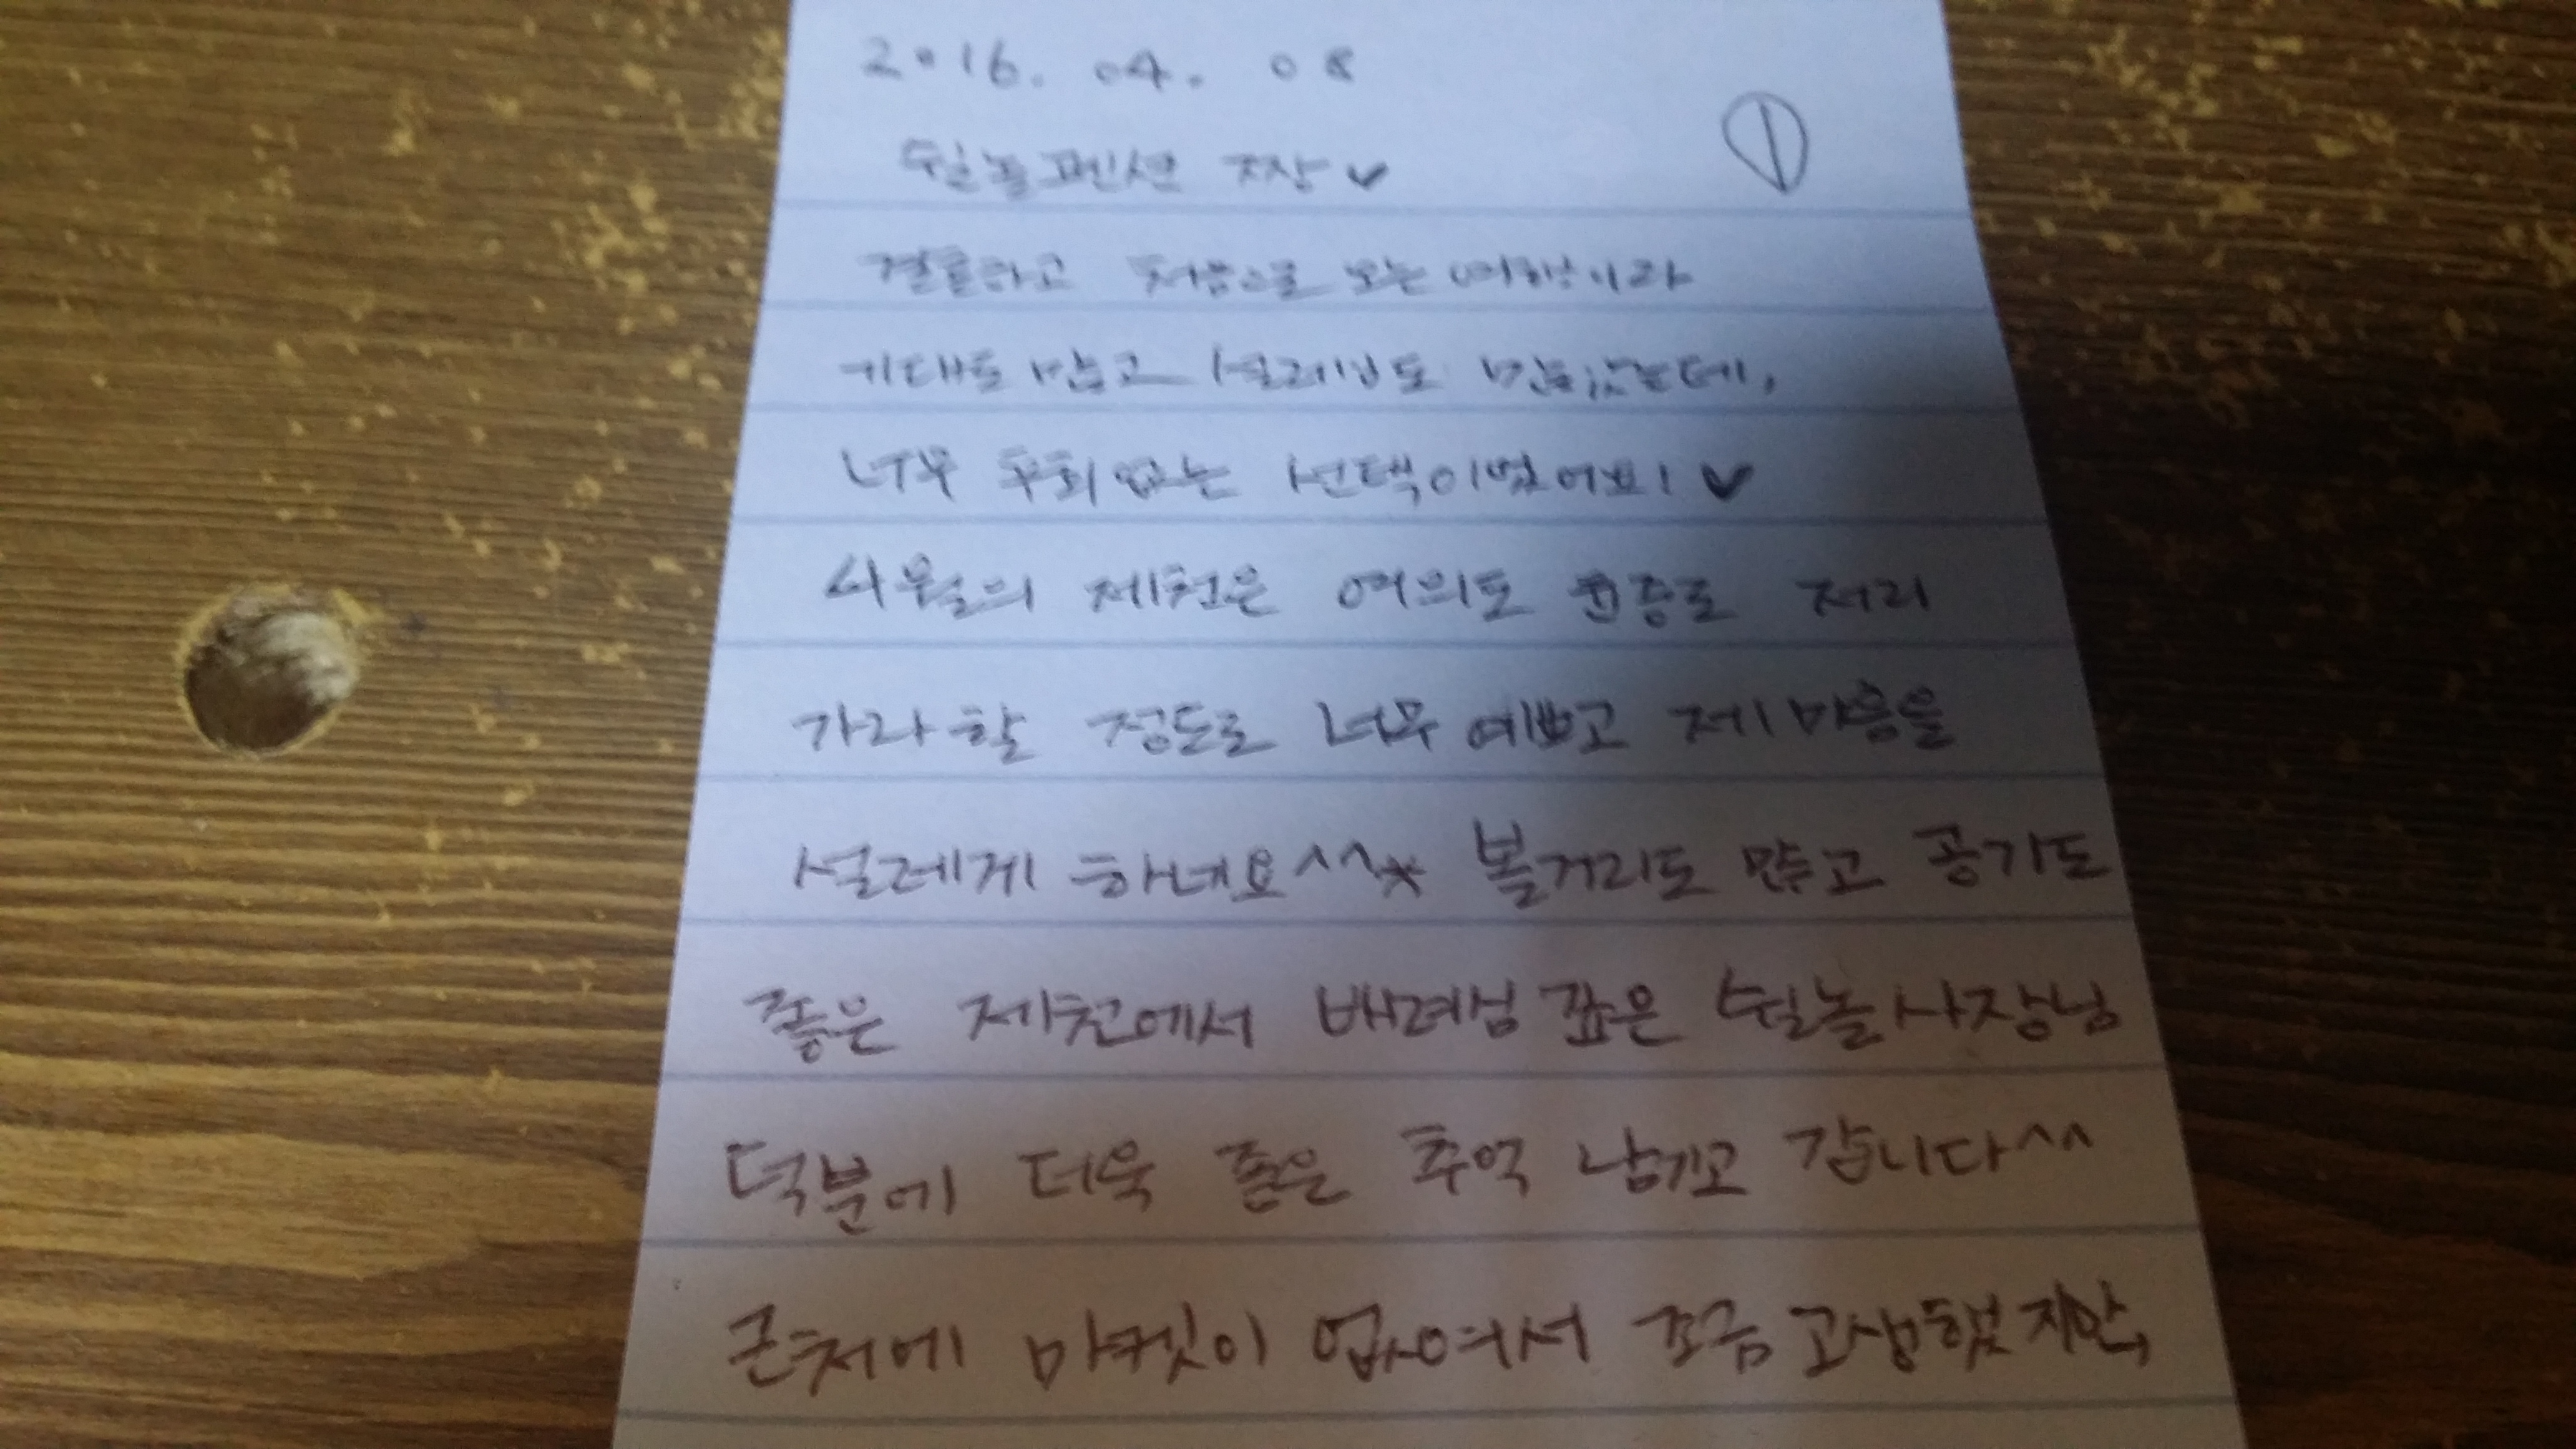 2016. 04. 08
①
쉴놀펜션 짱♥
결혼하고 처음으로 오는 여행이라
기대도 많고 설레임도 많았는데,
너무 후회 없는 선택이었어요! ♥
4월의 제천은 여의도 윤중로 저리
가라 할 정도로 너무 예쁘고 제 마음을
설레게 하네요^^* 볼거리도 많고 공기도
좋은 제천에서 배려심 깊은 쉴놀사장님
덕분에 더욱 좋은 추억 남기고 갑니다^^
근처에 마켓이 없어서 조금 고생했지만,